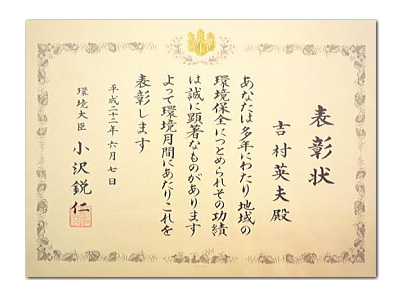 表彰状
吉村英夫殿
あなたは多年にわたり地域の
環境保全につとめられその功績
は誠に顕著なものがあります
よって環境月間にあたりこれを
表彰します
平成二十二年六月七日
環境大臣 小沢鋭仁